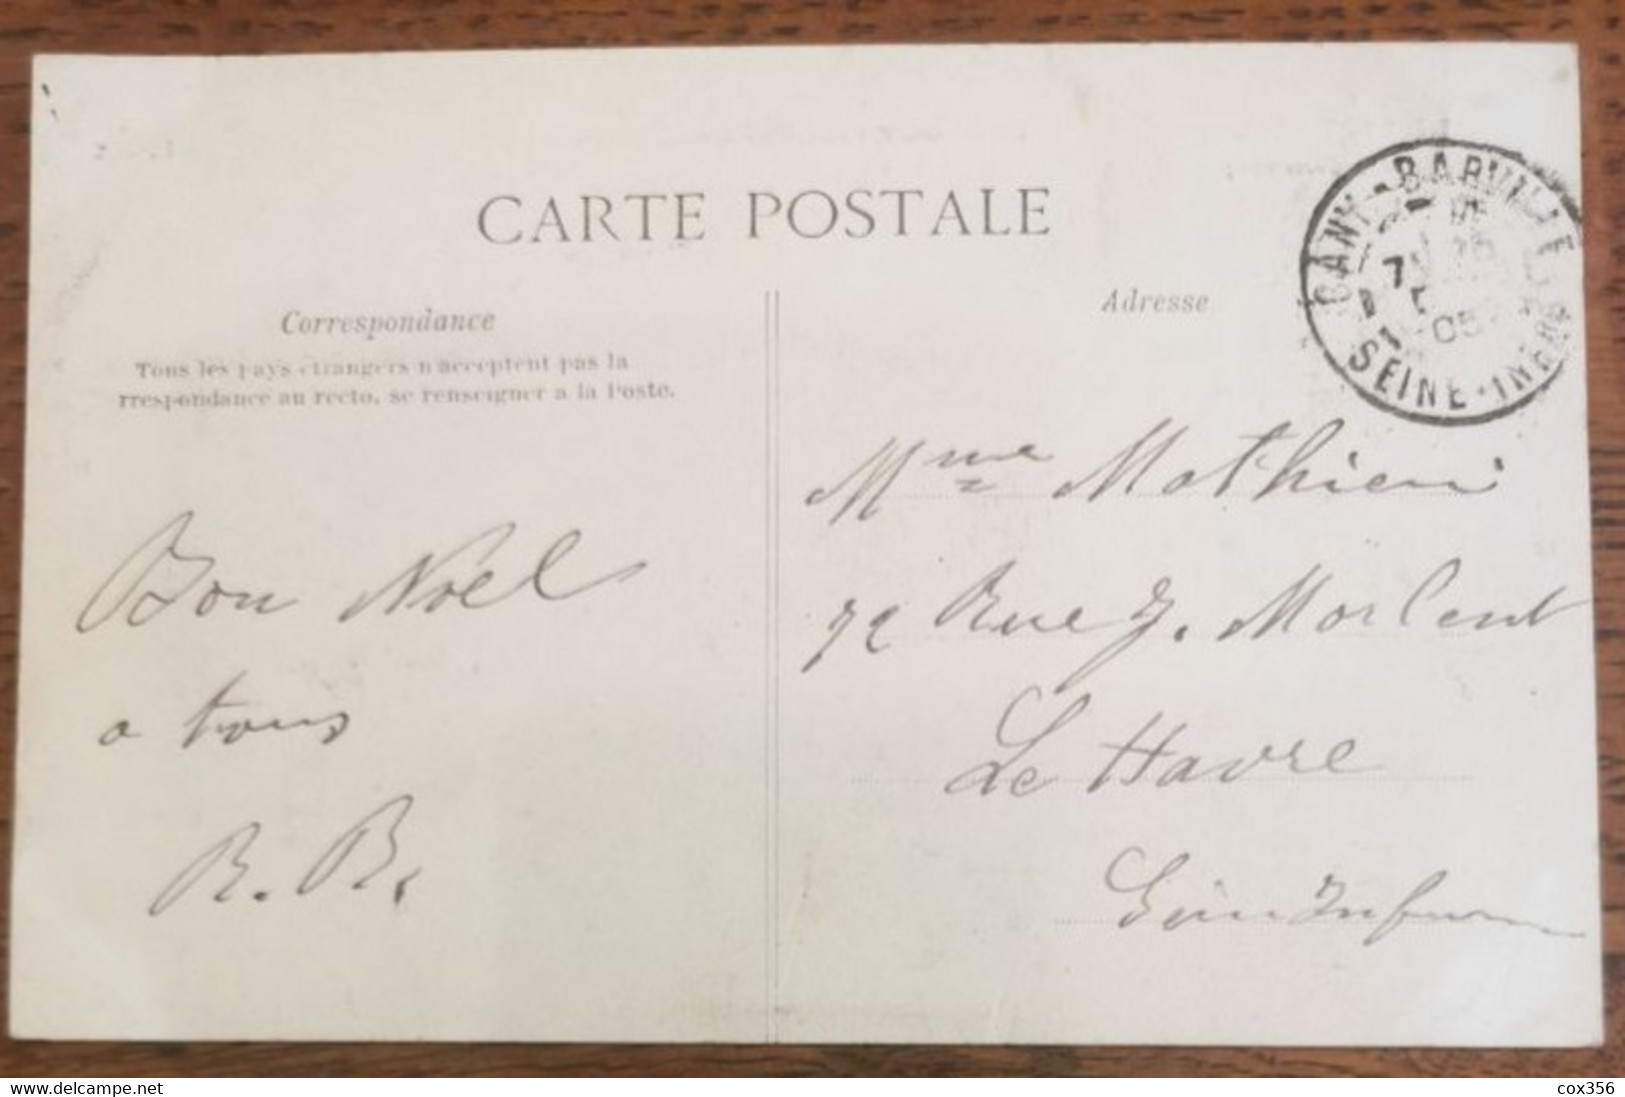 CARTE POSTALE
Correspondance
Tous les pays étrangers n'acceptent pas la
rrespondance au recto, se renseigner a la Poste.
Bon Noël
a tous
R. R.
Adresse
CANY-BARVILLE
05
SEINE-INFRE
Mme Mathieu
72 Rue J. Morlent
Le Havre
Seine Inferieure
www.delcampe.net
cox356